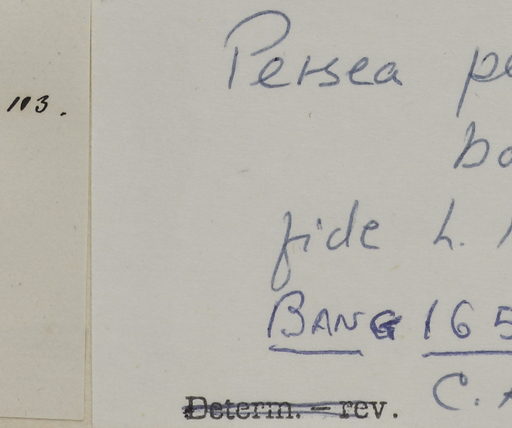 113.
Persea pe
ba
fide L.
BANG 165
C.
Determ. — rev.